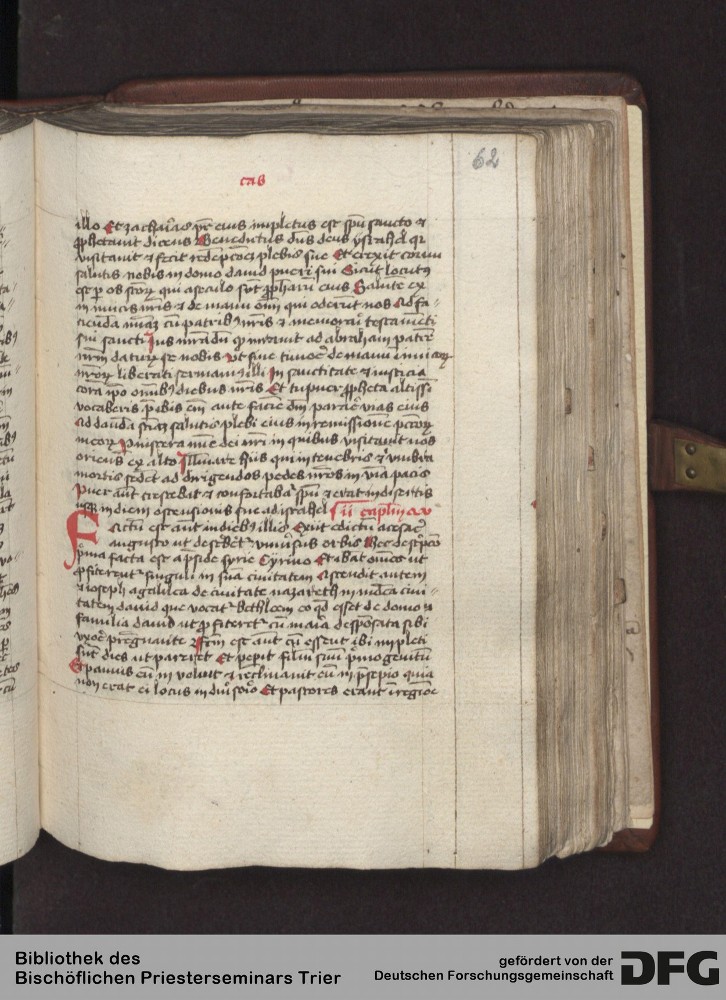 62
cas
illo Et zachaȓias pr̄ eius impletus est spū sancto ⁊
ꝓphetauit dicens Benedictus dn̄s deus ysrahel qꝛ
visitauit ⁊ fecit redēpcoēꝫ plebis sue Et erexit cornu
salutis nobis in domo dauid pueri sui Sicut locutꝰ
est ꝑ os scōꝝ qui a seculo sūt ꝓphaꝝ eius Salutē ex
inimicis nr̄is ⁊ de manu oīm qui oderūt nos Ad fa-
cienda mīaꝫ cū patribꝫ nr̄is ⁊ memorari testamēti
sui sancti Jus iurādū qͦ iurauit ad abraham patrē
nr̄m daturꝫ se nobis vt sine timore de manu inimicoꝝ
nr̄oꝝ liberati seruiamꝰ illi In sanctitate ⁊ iusticia
corā ip̄o omībꝫ diebus nr̄is Et tu puer ꝓpheta altissī
vocaberis p̄ibis em̄ ante faciē dn̄i parare vias eius
Ad dandā sciaꝫ salutis plebi eius in remissionē pctōꝝ
eoꝝ P viscera mīe dei nr̄i in quibus visitauit nos
oriens ex alto Illuīare hiis qui in tenebris ⁊ vmbra
mortis sedēt ad dirigendos pedes nr̄os in viā pacis
Puer aūt crescebat ⁊ confortabať spū ⁊ erat in disertis
usqꝫ in diem ostensionis sue ad israhel Sū caplm̄
Factū est aūt in diebꝫ illis Exiit edictū a cesaē
augusto ut describet᷑ vniūsus orbis Hec descpcō
p̄ma facta est a p̄side syrie Cyrino Et ibāt om̄es ut
ꝓfiterent᷑ singuli in suā ciuitatem Ascendit autem
⁊ ioseph a galilea de ciuitate nazareth in iudeā ciui-
tatem dauid que vocat᷑ Bethleem eo qd esset de domo ⁊
familia dauid ut ꝓfiteret᷑ cū maria despōsata sibi
vxore p̄gnante Fcm̄ est aūt cū essent ibi impleti
sūt dies ut pareret Et peꝑit filiū suū p̄mogenitū
Et pānis eū inuoluit ⁊ reclinauit eū in p̄sepio quia
non erat ei locus in diuͥsorio Et pastores erant ī regiōe
Bibliothek des
Bischöflichen Priesterseminars Trier
gefördert von der
Deutschen Forschungsgemeinschaft
DFG